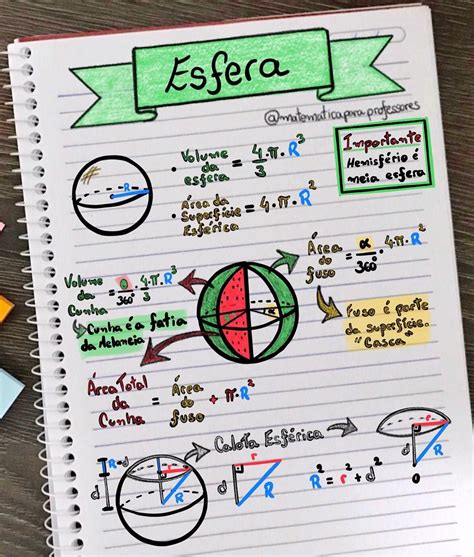 Esfera
@matematicapara.professores
Importante
Hemisfério é
meia esfera
• Volume da esfera = 4·π·R³/3
• Área da Superfície Esférica = 4·π·R²
Volume da Cunha = α/360° · 4·π·R³/3
Cunha é a fatia
da Melancia
Área do fuso = α/360° · 4·π·R²
Fuso é parte
da superfície.
"Casca"
Área Total da Cunha = Área do fuso + π·R²
Calota Esférica
R-d
d
r
R
d
r
R
R² = r² + d²
r
d
R
O
R